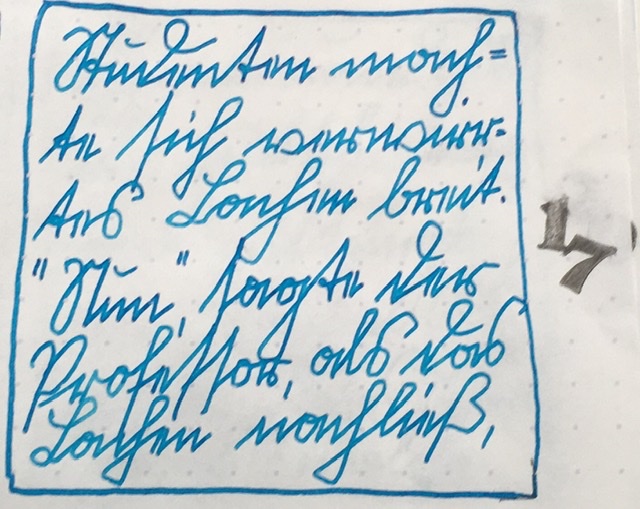 Studenten mach=
te sich verwirr-
tes Lachen breit.
"Nun", sagte der
Professor, als das
Lachen nachließ,
17